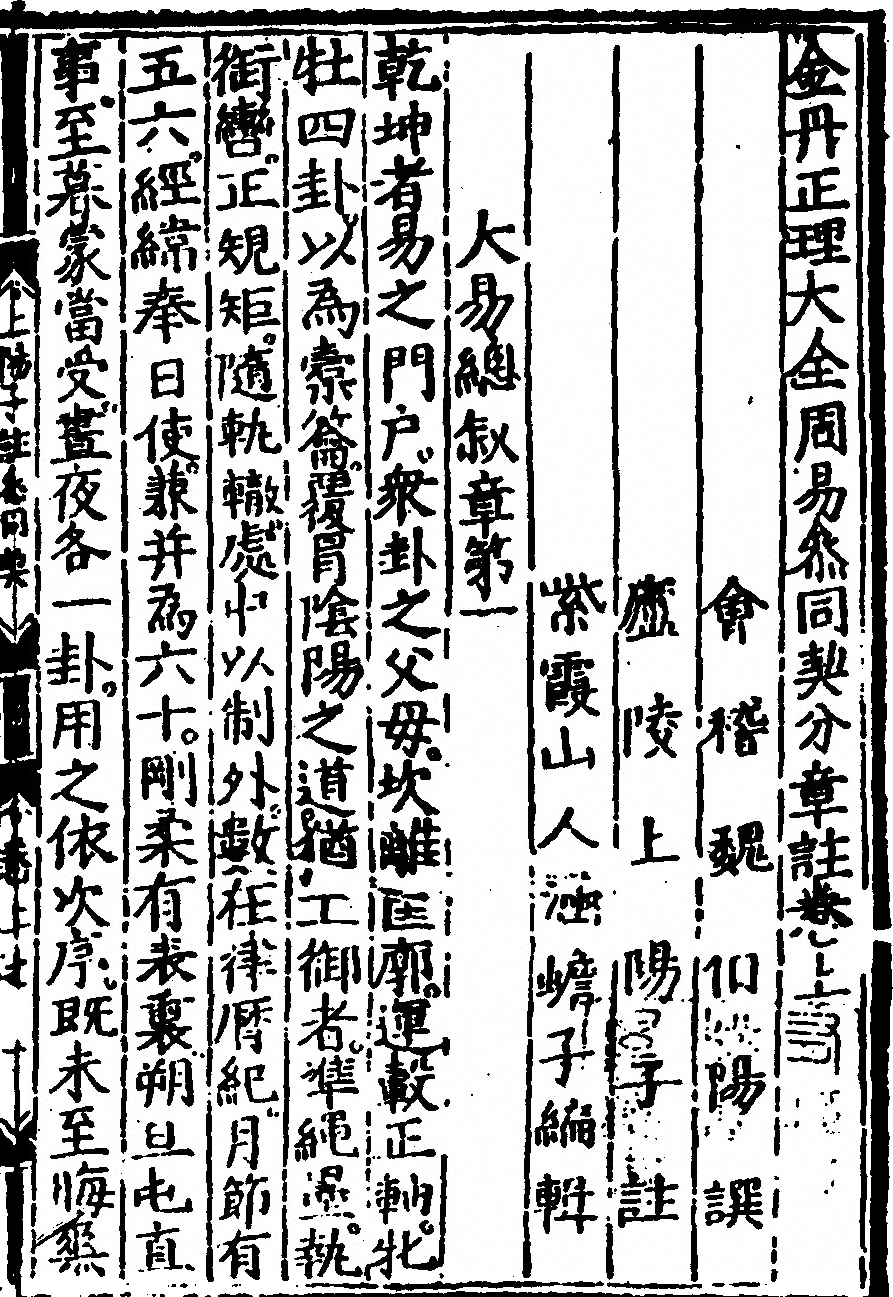 金丹正理大全周易參同契分章註卷之上
會稽魏伯陽譔
廬陵上陽子註
紫霞山人涵蟾子編輯
大易總叙章第一
乾坤者易之門户。衆卦之父母。坎離匡廓。運轂正軸。牝
牡四卦。以為橐籥。覆冒陰陽之道。猶工御者。準繩墨。執
銜轡。正規矩。隨軌轍。處中以制外。數在律曆紀。月節有
五六。經緯奉日使。兼并為六十。剛柔有表裏。朔旦屯直
事。至暮蒙當受。晝夜各一卦。用之依次序。既未至晦爽
上陽子註參同契
卷上